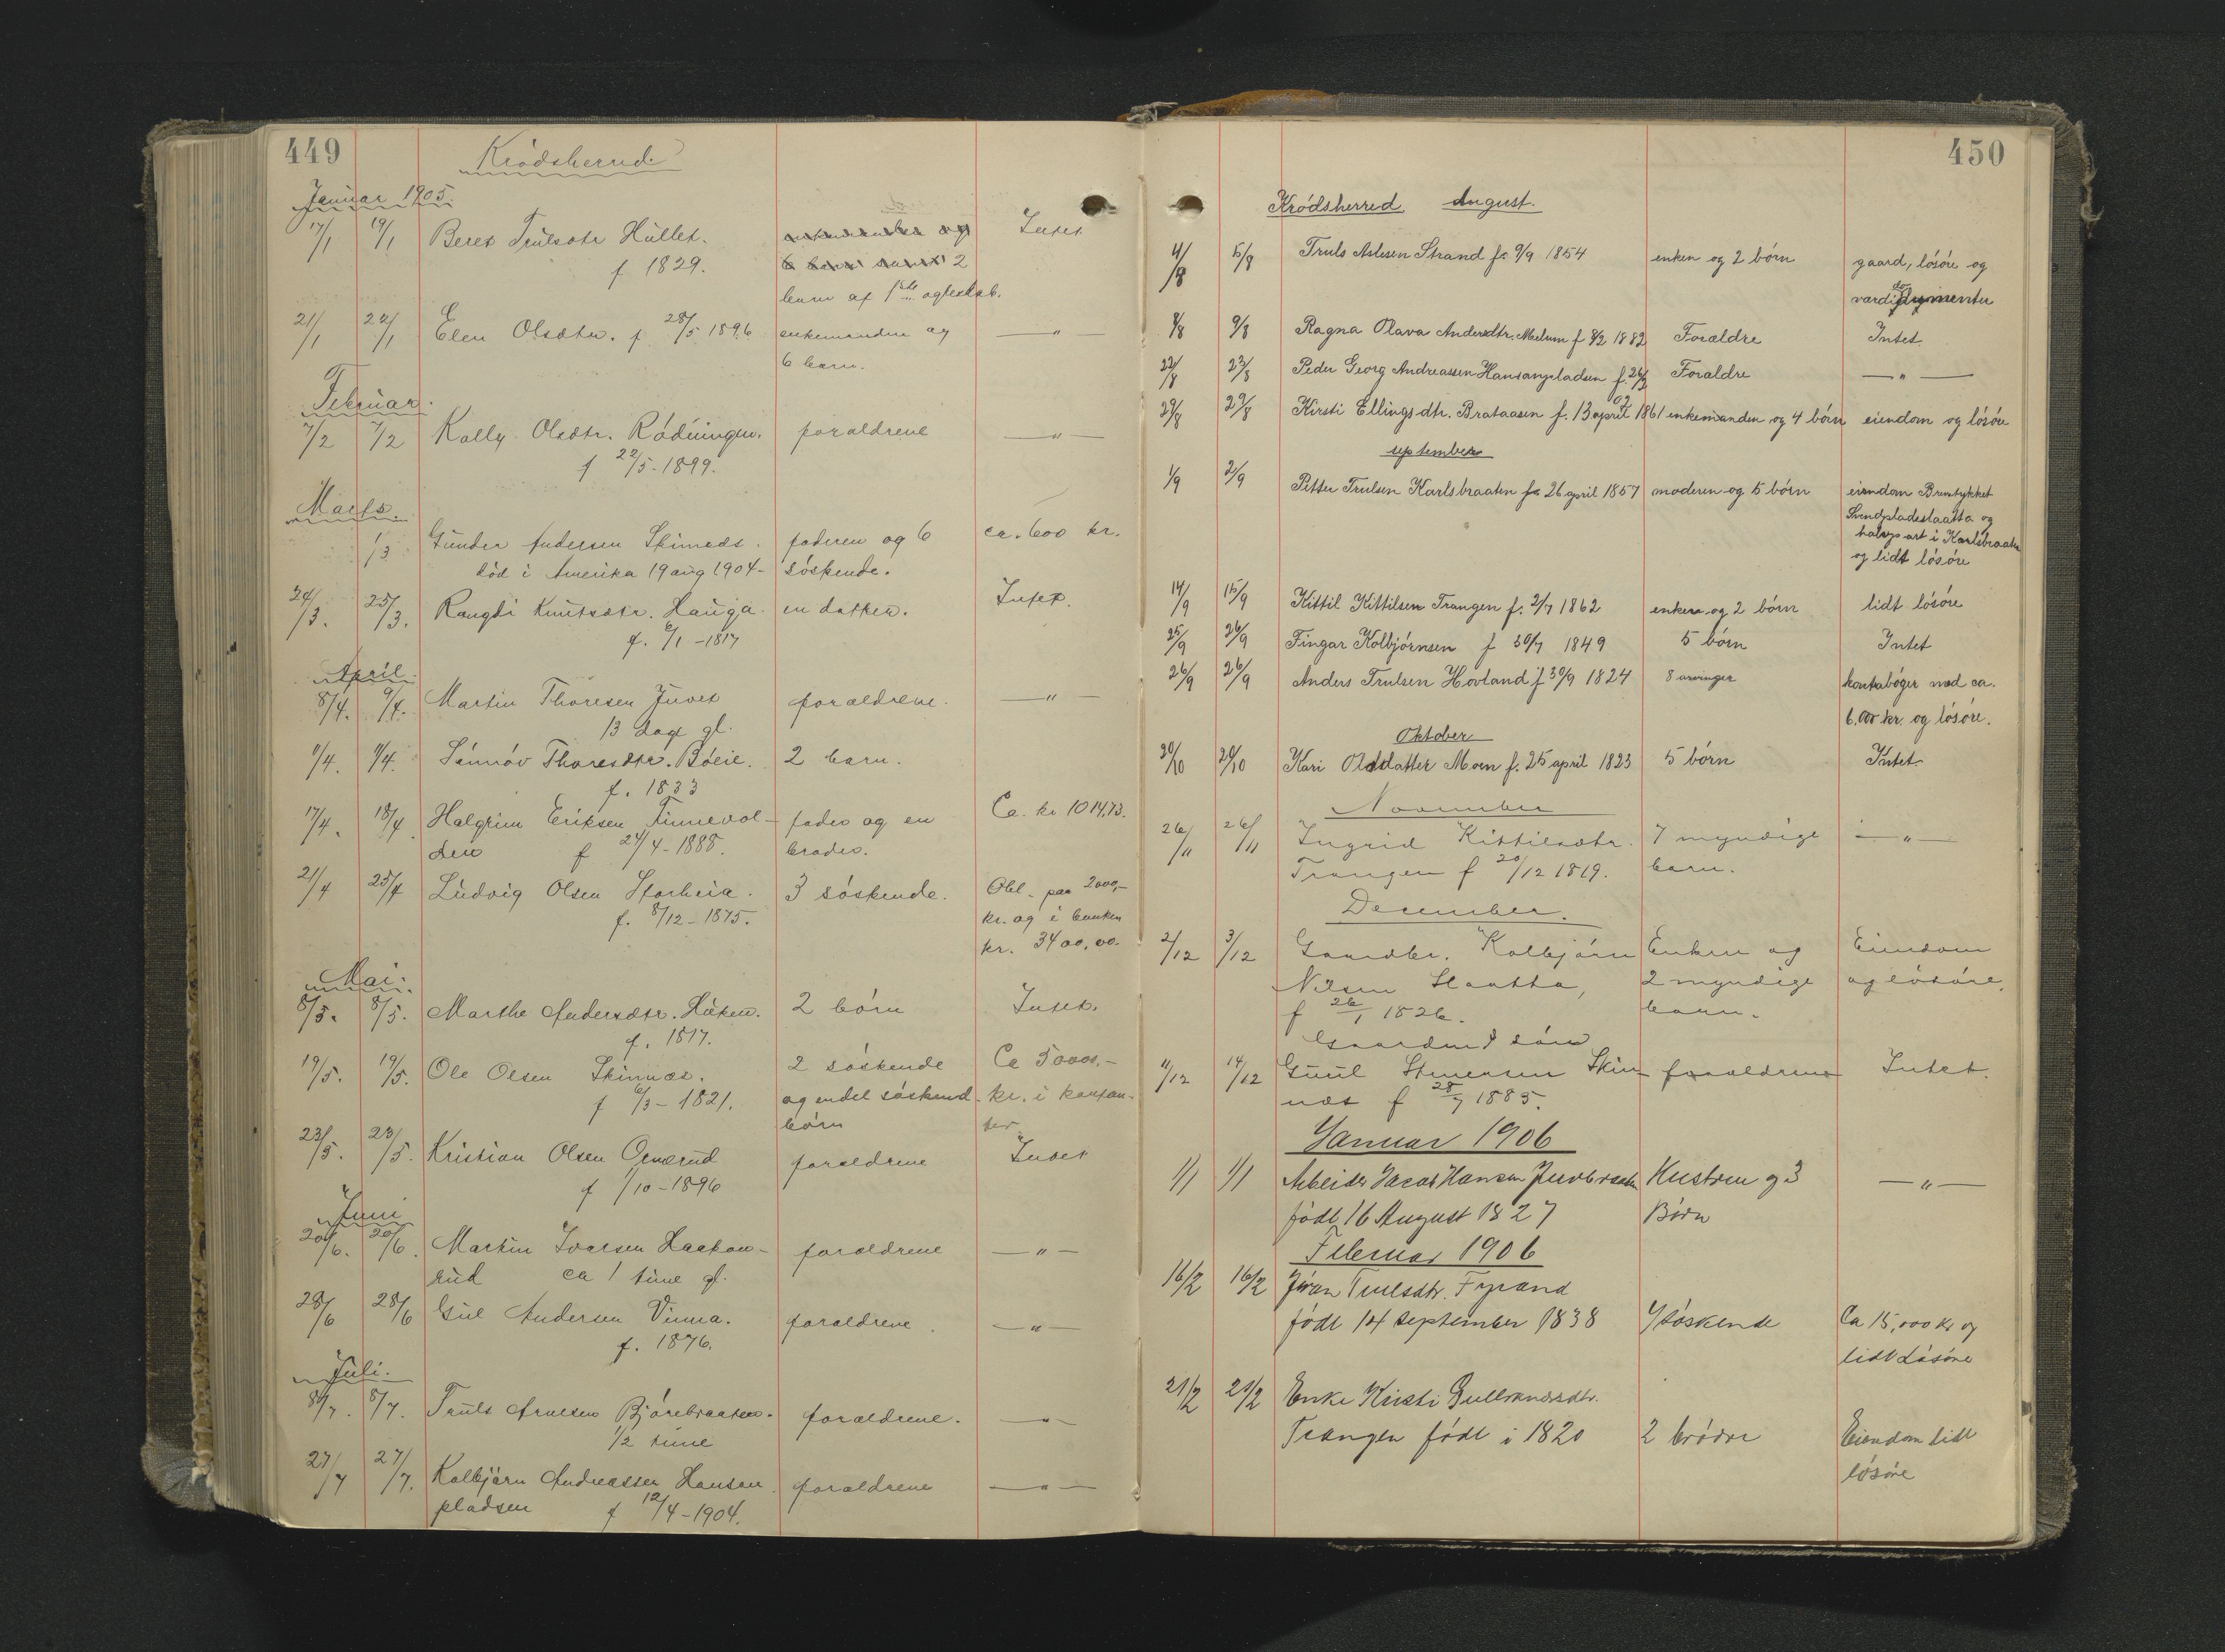 449
Krödsherred.
Januar 1905.
17/1 19/1 Beret Trulsdtr Hullet. og Intet
f 1829. 2
barn af 1ste egteskab.
21/1 22/1 Elen Olsdtr. f 28/5 1896 enkemanden og — " —
6 barn.
Februar.
7/2 7/2 Kolly Olsdtr. Rödningen. foraldrene — " —
f 22/5-1899.
Marts.
/3 Gunder Andersen Skinnæs. faderen og 6 ca. 600 kr.
död i Amerika 19 aug 1904 - söskende.
24/3. 25/3. Rangdi Knutsdtr. Hauga. en datter. Intet.
f. 6/1 -1817
April.
8/4. 9/4. Martin Thoresen Juvet foraldrene. — " —
13 dag gl.
11/4. 11/4. Sönnöv Thoresdtr. Böeie. 2 barn.
f. 1833
17/4. 18/4. Halgrim Eriksen Finnevol- fader og en Ca. kr 1014,73.
den f 24/4-1888. broder.
21/4 25/4 Ludvig Olsen Storheia. 3 söskende. Obl. paa 2000,-
f. 8/12-1875. kr. og i banken
kr. 3400,00.
Mai.
8/5. 8/5. Marthe Andersdtr. Haken. 2 börn Intet.
f. 1817.
19/5. 19/5. Ole Olsen Skinnæs. 2 söskende Ca 5000,-
f 6/3- 1821. og endel söskend- kr. i kontan-
börn ter
23/5. 23/5. Kristian Olsen Ornerud foraldrene Intet
f /10-1896
Juni
20/6. 20/6. Martin Ivarsen Haakon- foraldrene — " —
rud ca 1 time gl.
28/6 28/6 Gul Andersen Vinna. foraldrene. — " —
f. 1876.
Juli.
8/7. 8/7. Truls Arnesen Björebraaten. foraldrene. — " —
1/2 time
27/7 27/7. Kolbjörn Andreassen Hansan foraldrene — " —
pladsen f 12/4-1904.
450
Krödsherred August.
4/8 5/8 Truls Aslesen Strand fø 9/9 1854 enken og 2 börn gaard, lösöre og
8/8 9/8 Ragna Olava Andersdtr. Medum f 8/2 1882 Forældre Intet
22/8 23/8 Peder Georg Andreassen Hansanpladsen f. 26/3 Foraldre — " —
02
29/8 29/8 Kirsti Ellingsdtr. Brataasen f. 13 april 1861 enkemanden og 4 börn eiendom og lösöre
september
1/9 2/9 Petter Trulsen Karlsbraaten fø 26 april 1857 moderen og 5 börn eiendom Brenstykket
Svendpladeslaatta og
halvpart i Karlsbraaten
og lidt lösöre
14/9 15/9 Kittil Kittilsen Trangen f. 2/7 1862 enken og 2 börn lidt lösöre
25/9 26/9 Fingar Kolbjörnsen f 30/7 1849 5 börn Intet
26/9 26/9 Anders Trulsen Hovland f 30/9 1824 8 arvinger kontrabøger med ca.
6.000 kr. og lösöre.
Oktober
20/10 20/10 Kari Olsdatter Moen f. 25 april 1823 5 börn Intet
November
26/11 26/11 Ingrid Kittilsdtr. 7 myndige — " —
Trangen f 20/12 1819. barn.
December.
2/12 3/12 Gaardbr. Kolbjörn Enken og Eiendom
Nilsen Slaatta, 2 myndige og lösöre.
f 26/1 1826. barn.
Gaardmd sön
11/12 14/12 Guul Stenersen Skin- foraldrene Intet.
næs f 28/7 1885.
Januar 1906
1/1 1/1 Arbeider Jacob Hansen Juvbraaten Hustru og 3 — " —
född 16 August 1827 Börn
Februar 1906
16/2 16/2 Jöran Trulsdtr. Fyrand
född 14 September 1838 4 söskende Ca 15,000 kr og
lidt Lösöre
21/2 21/2 Enke Kristi Gulbrandsdtr.
Trangen född i 1820 2 brödre Eiendom lidt
lösöre